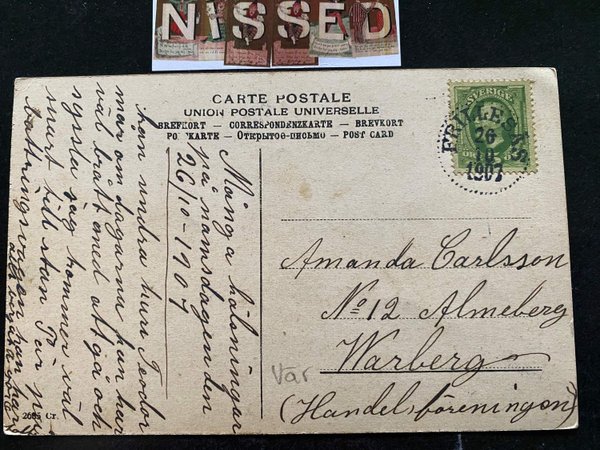 NISSEO
CARTE POSTALE
UNION POSTALE UNIVERSELLE
BREFKORT — CORRESPONDENZKARTE — BREVKORT
POSTKARTE — Открытое-письмо — POST CARD
SVERIGE
FRILLESÅS
26
10
1907
Många hälsningar
på namsdagen den
26/10-1907
kan undra huru Teodor
mår om dagarna han har
väl brått med att gå och
syssla jag kommer väl
snart till stan Per
Amanda Carlsson
No 12 Almeberg
Warberg
(Handelsföreningen)
Var
2685 Cr.